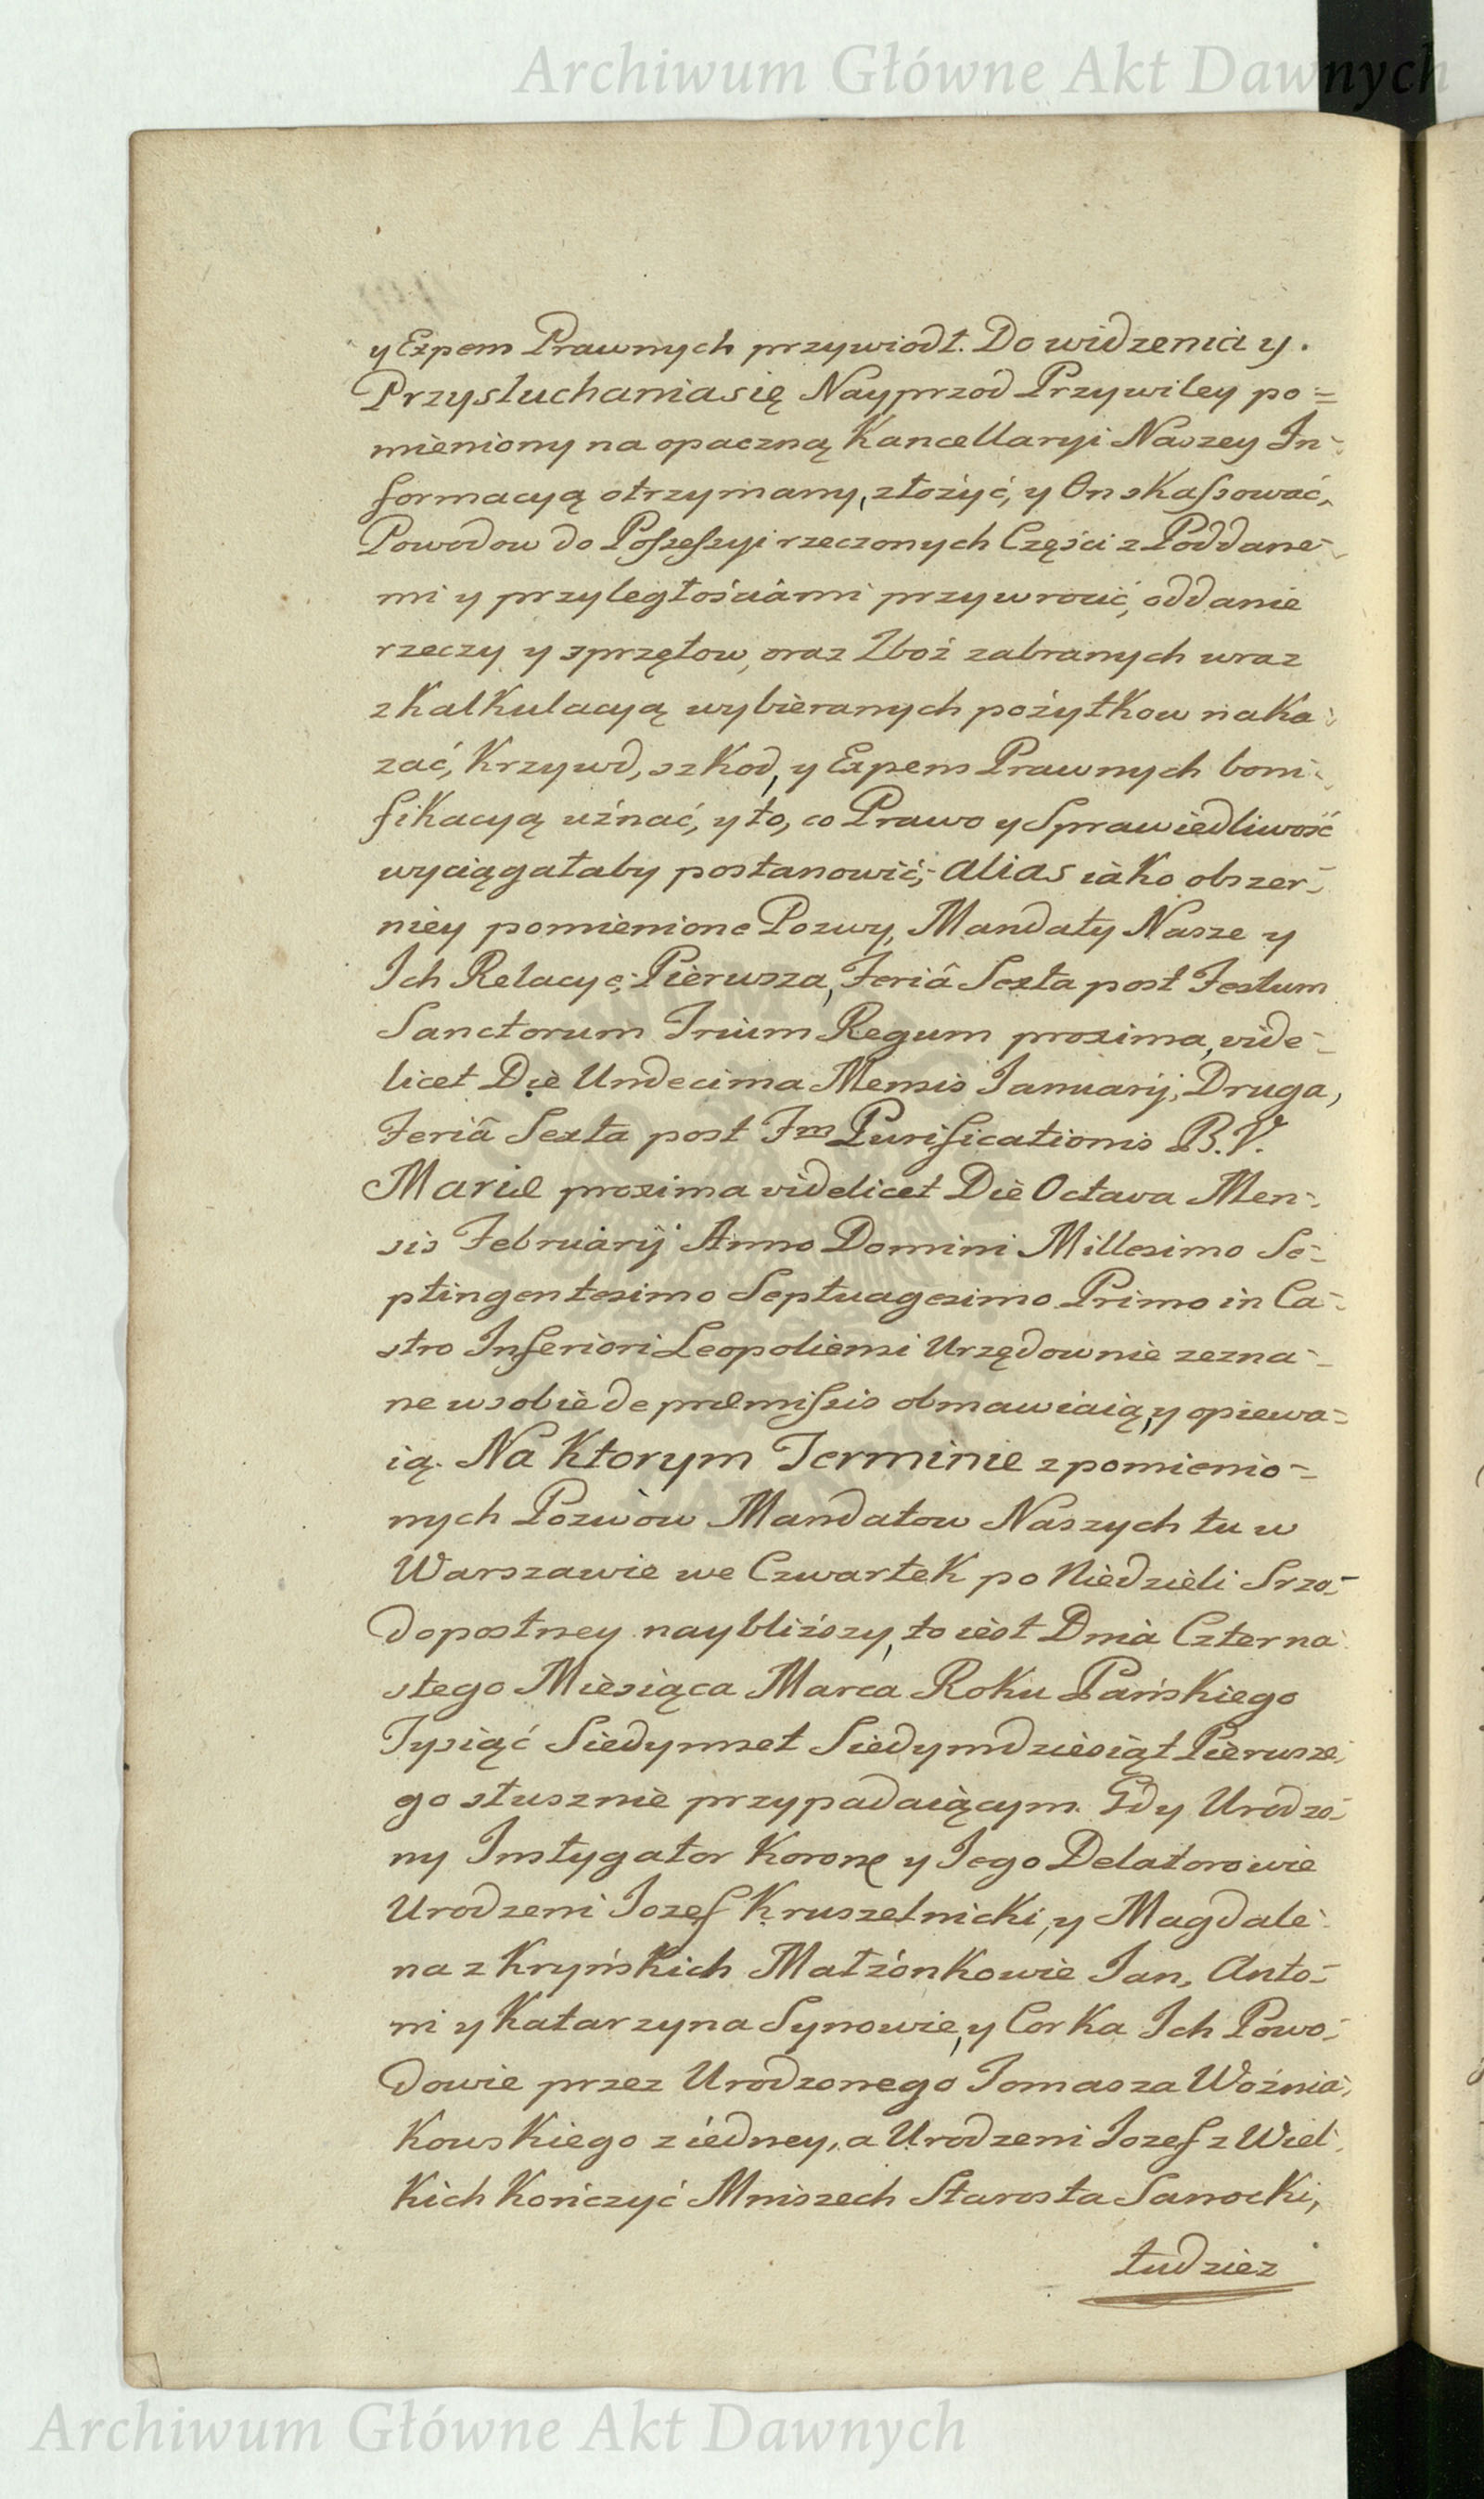 Archiwum Główne Akt Dawnych
y Expens Prawnych przywiodł. Do widzenia y.
Przysłuchania się Nayprzod Przywiley po=
mieniony na opaczną Kancellaryi Naszey In-
formacyą otrzymany, złożyć, y On skassować,
Powodow do Possessyi rzeczonych Części z Poddane-
mi y przyległościámi przywrocić, oddanie
rzeczy y sprzętow, oraz Zboż zabranych wraz
z Kalkulacyą wybieranych pożytkow naka-
zać, Krzywd, szkod, y Expens Prawnych boni-
fikacyą uźnać, y to, co Prawo y Sprawiedliwość
wyciągałaby postanowić; alias iáko obszer-
niey pomienione Pozwy, Mandaty Nasze y
Ich Relacye; Pierwsza, Feriâ Sexta post Festum
Sanctorum Trium Regum proxima, vide-
licet Die Undecima Mensis Januarij, Druga,
Feriâ Sexta post Fm Purificationis B. V.
Mariæ proxima videlicet Die Octava Men-
sis Februarij Anno Domini Millesimo Se-
ptingentesimo Septuagesimo Primo in Ca-
stro Inferiori Leopoliensi Urzędownie zezna-
ne w sobie de præmissis obmawiaią, y opiewa=
ią. Na Ktorym Terminie z pomienio-
nych Pozwow Mandatow Naszych tu w
Warszawie we Czwartek po Niedzieli Srzo-
dopostney naybliższy, to iest Dnia Czterna-
stego Miesiąca Marca Roku Pańskiego
Tysiąć Siedymset Siedymdziesiąt Pierwsze-
go słusznie przypadaiącym. Gdy Urodzo-
ny Instygator Koronę y Jego Delatorowie
Urodzeni Jozef Kruszelnicki, y Magdale-
na z Kryńskich Małżonkowie Jan, Anto-
ni y Katarzyna Synowie, y Corka Ich Powo-
dowie przez Urodzonego Tomasza Woźnia-
kowskiego z iedney, a Urodzeni Jozef z Wiel-
kich Kończyć Mniszech Starosta Sanocki,
tudziez
Archiwum Główne Akt Dawnych